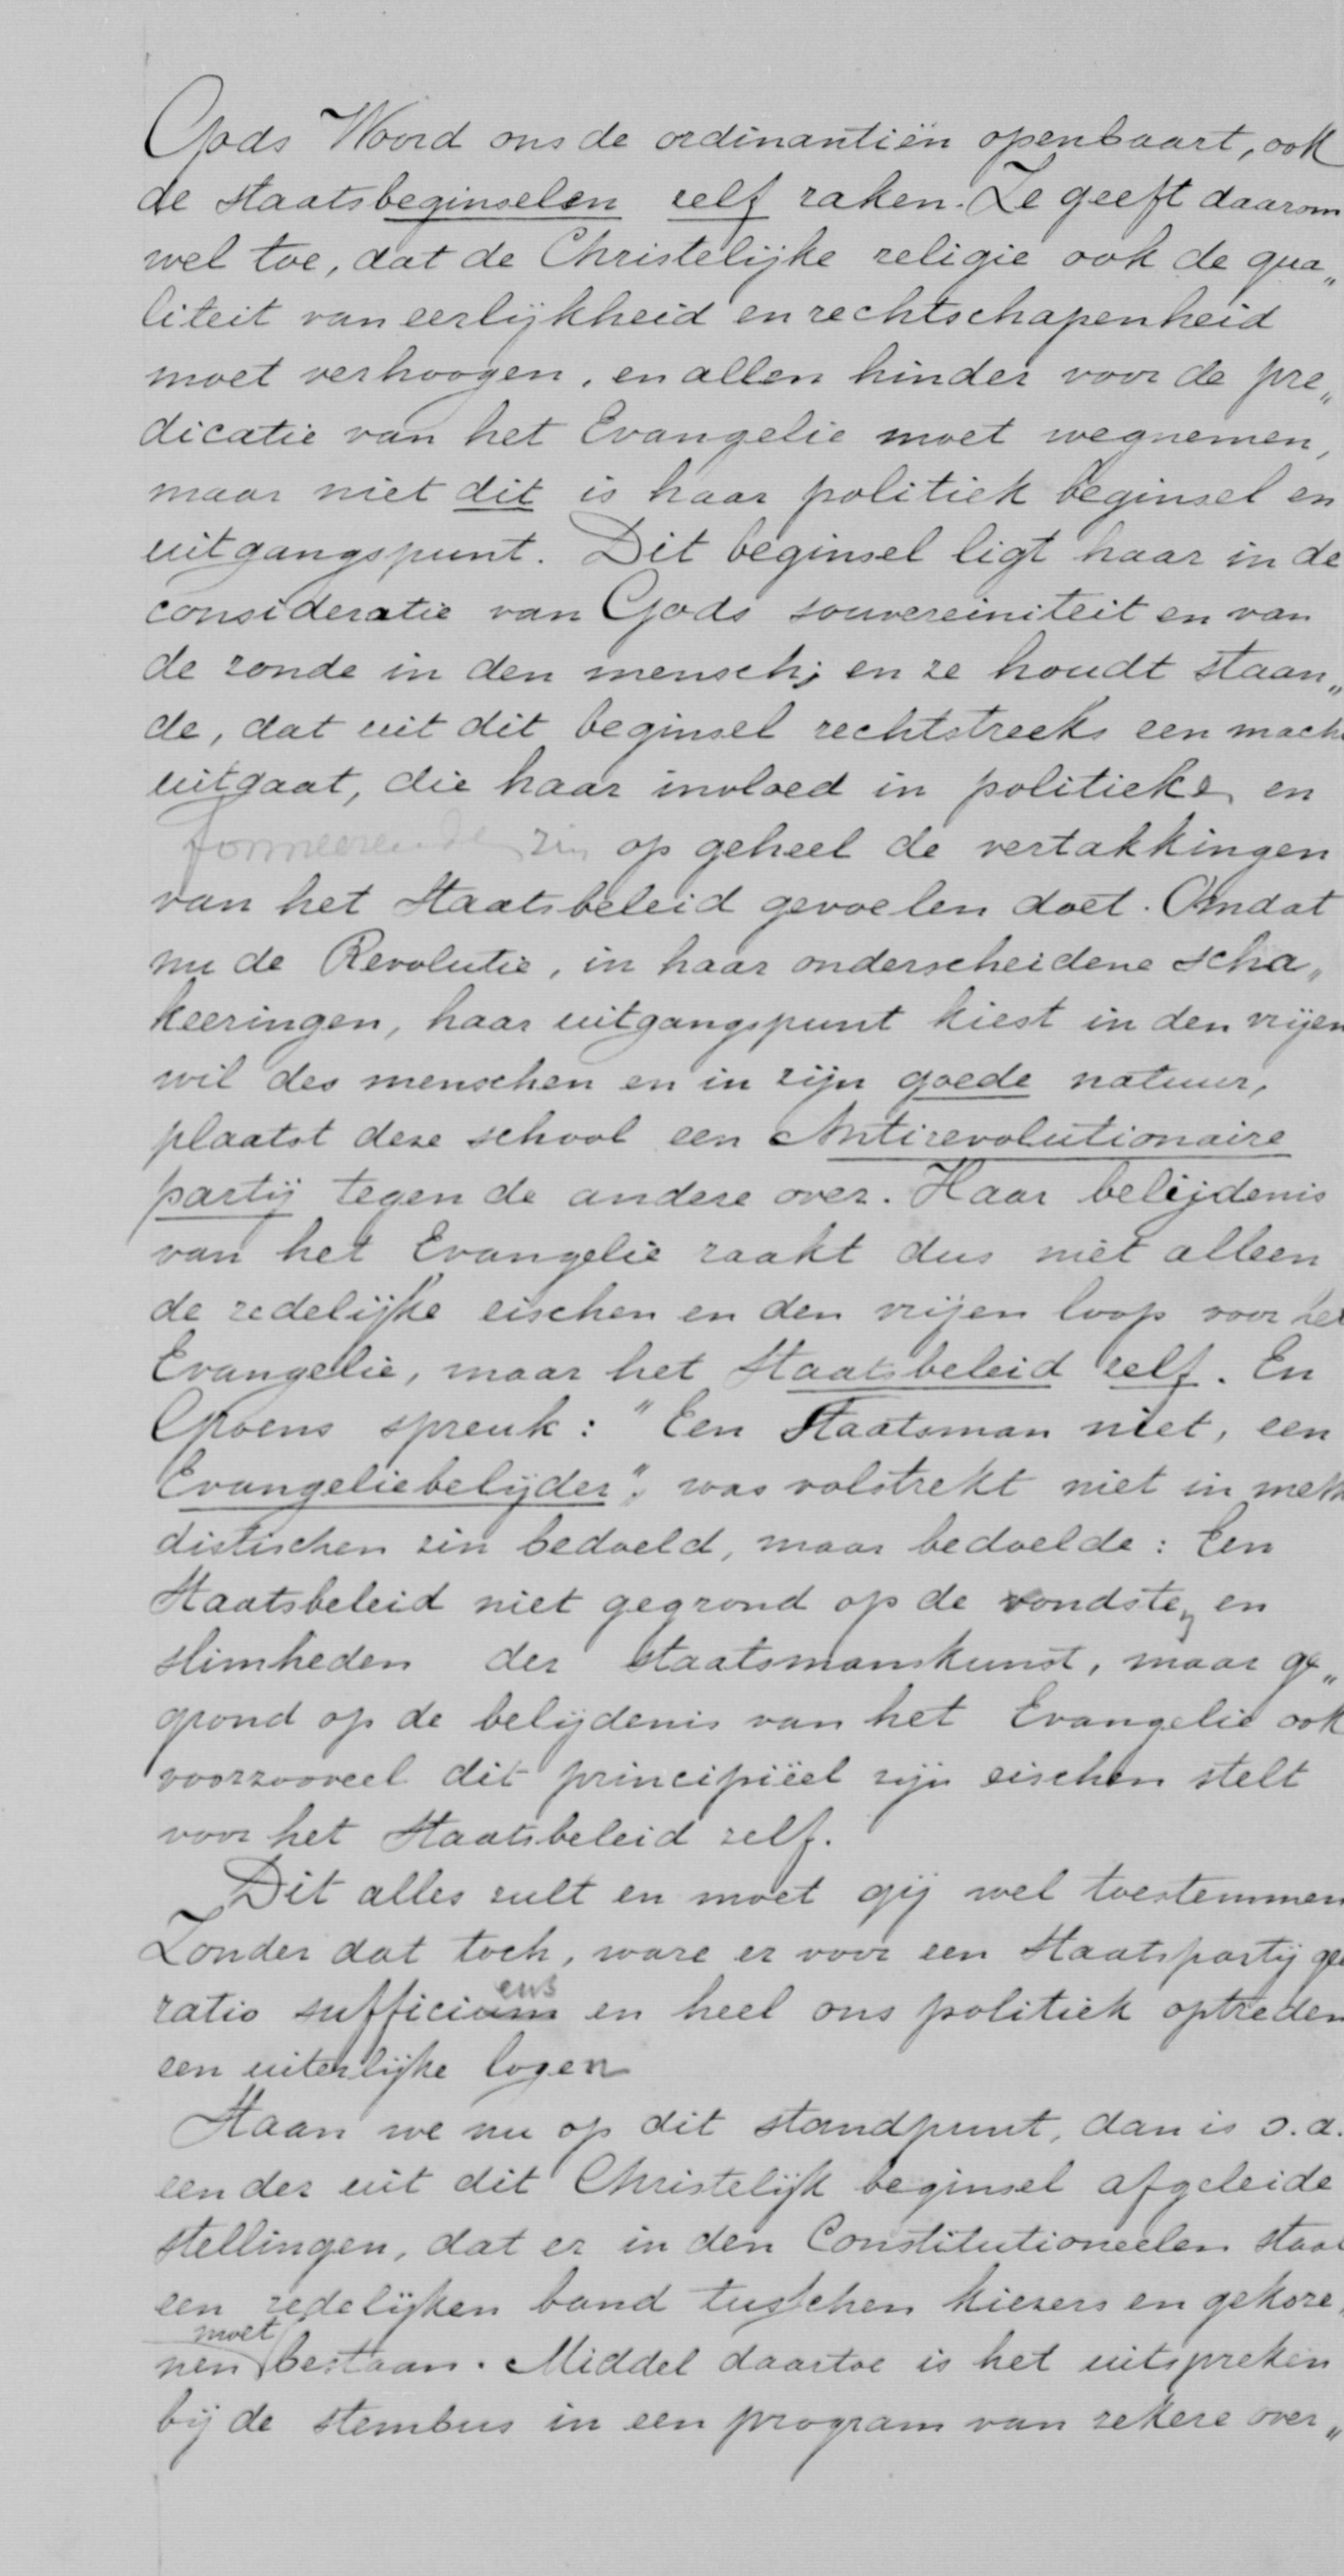 Gods Woord ons de ordinantiën openbaart, ook
de staatsbeginselen zelf raken. Ze geeft daarom
wel toe, dat de Christelijke religie ook de qua„
liteit van eerlijkheid en rechtschapenheid
moet verhoogen, en allen hinder voor de pre„
dicatie van het Evangelie moet wegnemen,
maar niet dit is haar politiek beginsel en
uitgangspunt. Dit beginsel ligt haar in de
consideratie van Gods souvereiniteit en van
de zonde in den mensch; en ze houdt staan„
de, dat uit dit beginsel rechtstreeks een mach
uitgaat, die haar invloed in politieke en
formeerende zin op geheel de vertakkingen
van het Staatsbeleid gevoelen doet. Omdat
nu de Revolutie, in haar onderscheidene scha„
keeringen, haar uitgangspunt kiest in den vrijen
wil des menschen en in zijn goede natuur,
plaatst deze school een Antirevolutionaire
partij tegen de andere over. Haar belijdenis
van het Evangelie raakt dus niet alleen
de zedelijke eischen en den vrijen loop voor het
Evangelie, maar het Staatsbeleid zelf. En
Groens spreuk: "Een Staatsman niet, een
Evangeliebelijder", was volstrekt niet in meth
distischen zin bedoeld, maar bedoelde: Een
Staatsbeleid niet gegrond op de vondsten en
slimheden der staatsmanskunst, maar ge„
grond op de belijdenis van het Evangelie ook
voorzooveel dit principiëel zijn eischen stelt
voor het Staatsbeleid zelf.
Dit alles zult en moet gij wel toestemmen
Zonder dat toch, ware er voor een Staatspartij gee
ratio sufficiens en heel ons politiek optreden
een uiterlijke logen
Staan we nu op dit standpunt, dan is o.a.
een der uit dit Christelijk beginsel afgeleide
stellingen, dat er in den Constitutioneelen staat
een zedelijken band tusschen kiezers en gekore
nen moet bestaan. Middel daartoe is het uitspreken
bij de stembus in een program van zekere over„